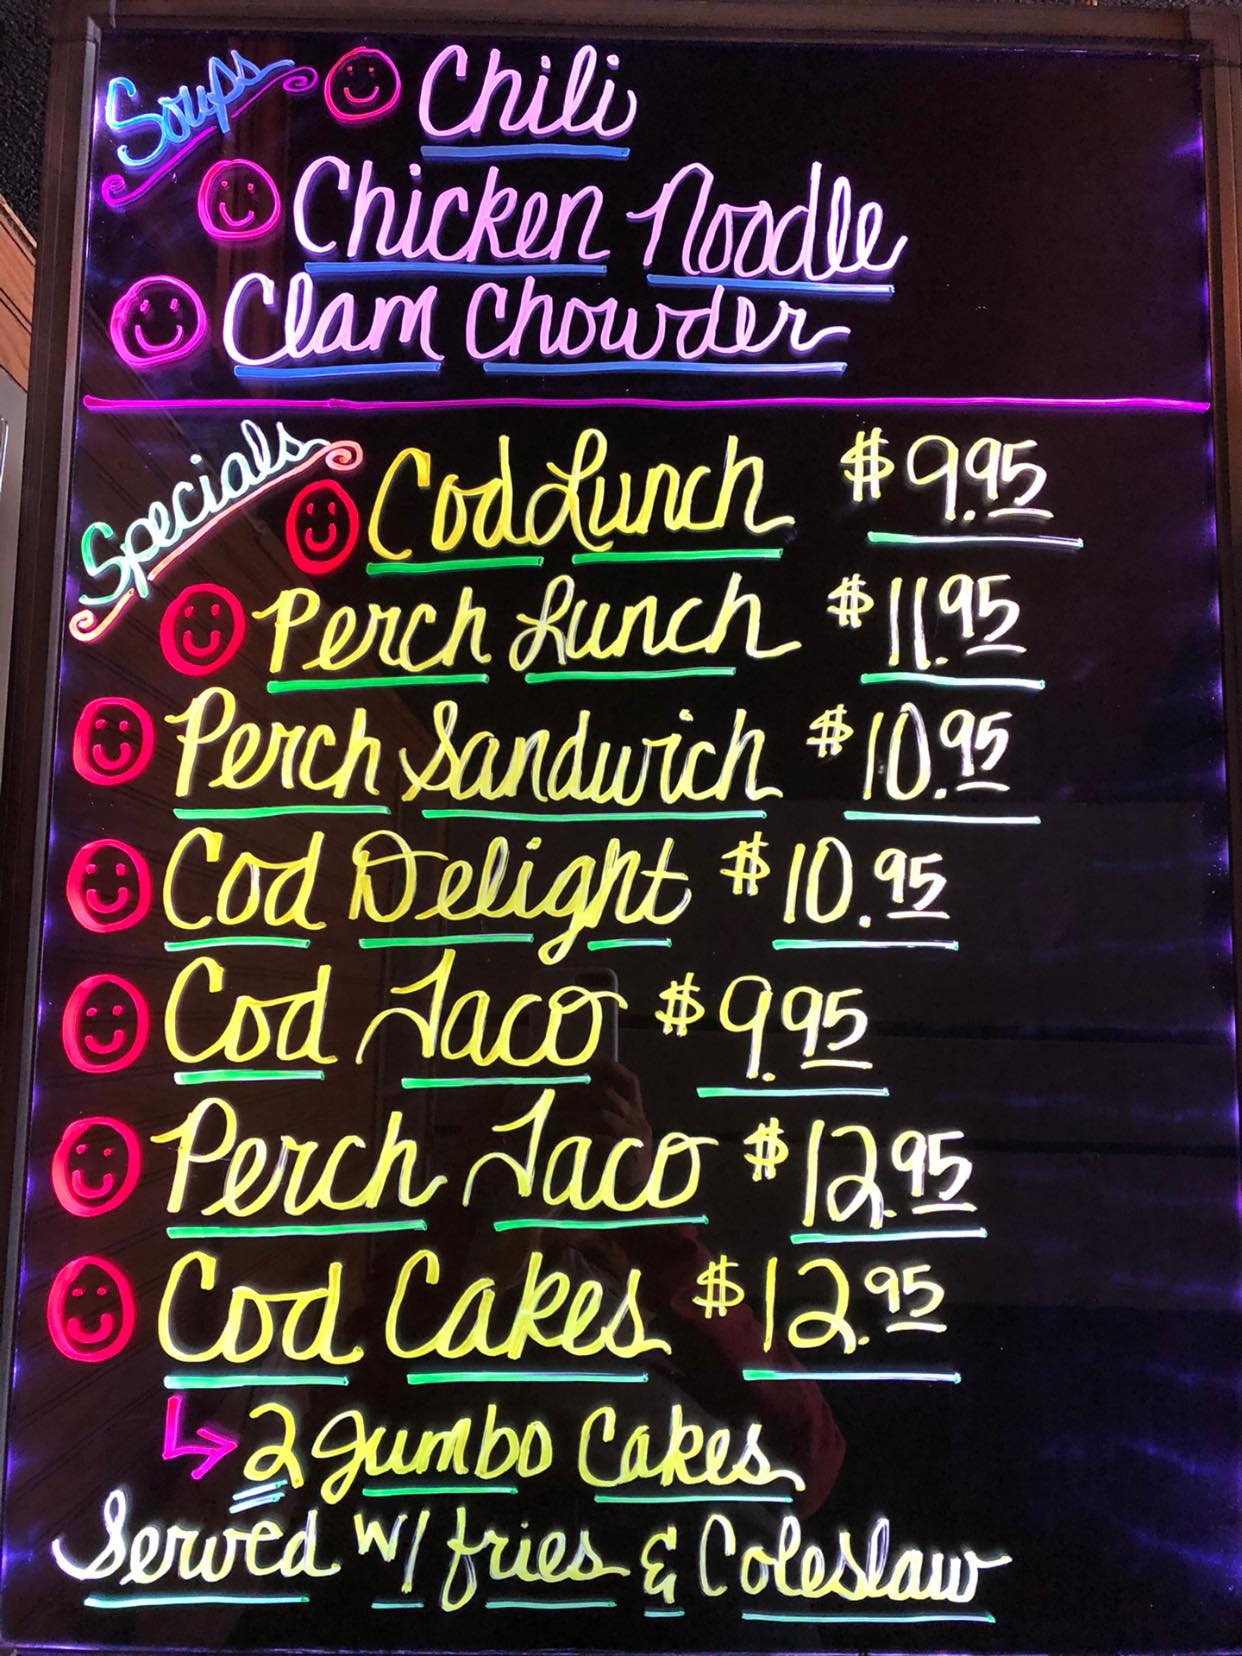 Soups
Chili
Chicken Noodle
Clam Chowder
Specials
Cod Lunch $9.95
Perch Lunch $11.95
Perch Sandwich $10.95
Cod Delight $10.95
Cod Taco $9.95
Perch Taco $12.95
Cod Cakes $12.95
2 Jumbo Cakes
Served w/ fries & Coleslaw